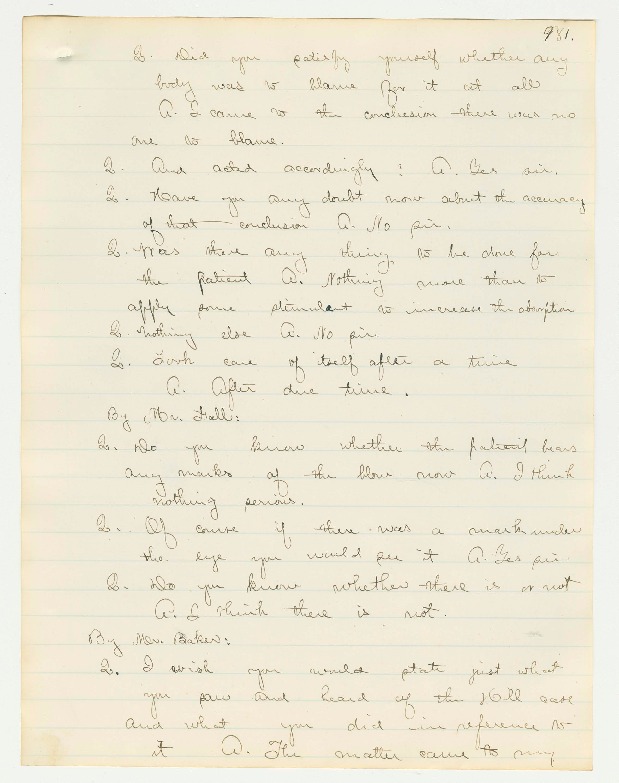 981.
Q. Did you satisfy yourself whether any
body was to blame for it at all
A. I came to the conclusion there was no
one to blame.
Q. And acted accordingly? A. Yes sir.
Q. Have you any doubt now about the accuracy
of that conclusion A. No sir.
Q. Was there any thing to be done for
the patient A. Nothing more than to
apply some stimulent to increase the absorption
Q. Nothing else A. No sir
Q. Took care of itself after a time
A. After due time.
By Mr. Fall:
Q. Do you know whether the patient bears
any marks of the blow now A. I think
nothing serious.
Q. Of course if there was a mark under
the eye you would see it A. Yes sir
Q. Do you know whether there is or not
A. I think there is not.
By Mr. Baker:
Q. I wish you would state just what
you saw and heard of the case
and what you did in reference to
it A. The matter came to my